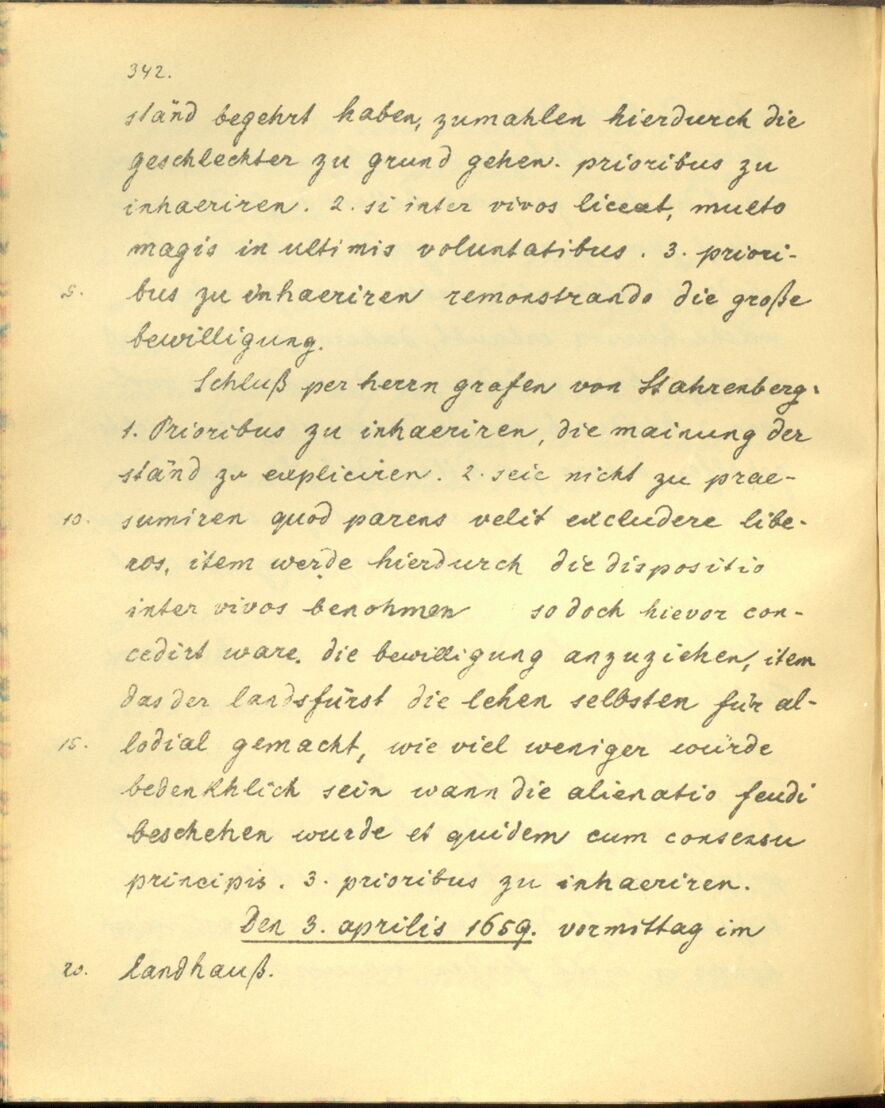 342.
ständ begehrt haben, zumahlen hierdurch die
geschlechter zu grund gehen. prioribus zu
inhaeriren. 2. si inter vivos liceat, multo
magis in ultimis voluntatibus. 3. priori-
5. bus zu inhaeriren remonstrando die große
bewilligung.
Schluß per herrn grafen von Stahrenberg:
1. Prioribus zu inhaeriren, die mainung der
ständ zu expliciren. 2. seie nicht zu prae-
10. sumiren quod parens velit excludere libe-
ros, item werde hierdurch die dispositio
inter vivos benohmen so doch hievor con-
cedirt ware. die bewilligung anzuziehen, item
das der landsfürst die lehen selbsten für al-
15. lodial gemacht, wie viel weniger würde
bedenkhlich sein wann die alienatio feudi
beschehen wurde et quidem cum consensu
principis. 3. prioribus zu inhaeriren.
Den 3. aprilis 1659. vormittag im
20. landhauß.